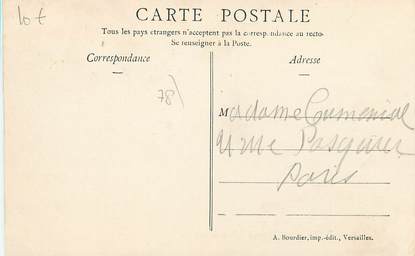 10 €
CARTE POSTALE
Tous les pays étrangers n'acceptent pas la correspondance au recto
Se renseigner à la Poste.
Correspondance
Adresse
78
Madame
4 rue Pasquier
Paris
A. Bourdier, imp.-édit., Versailles.